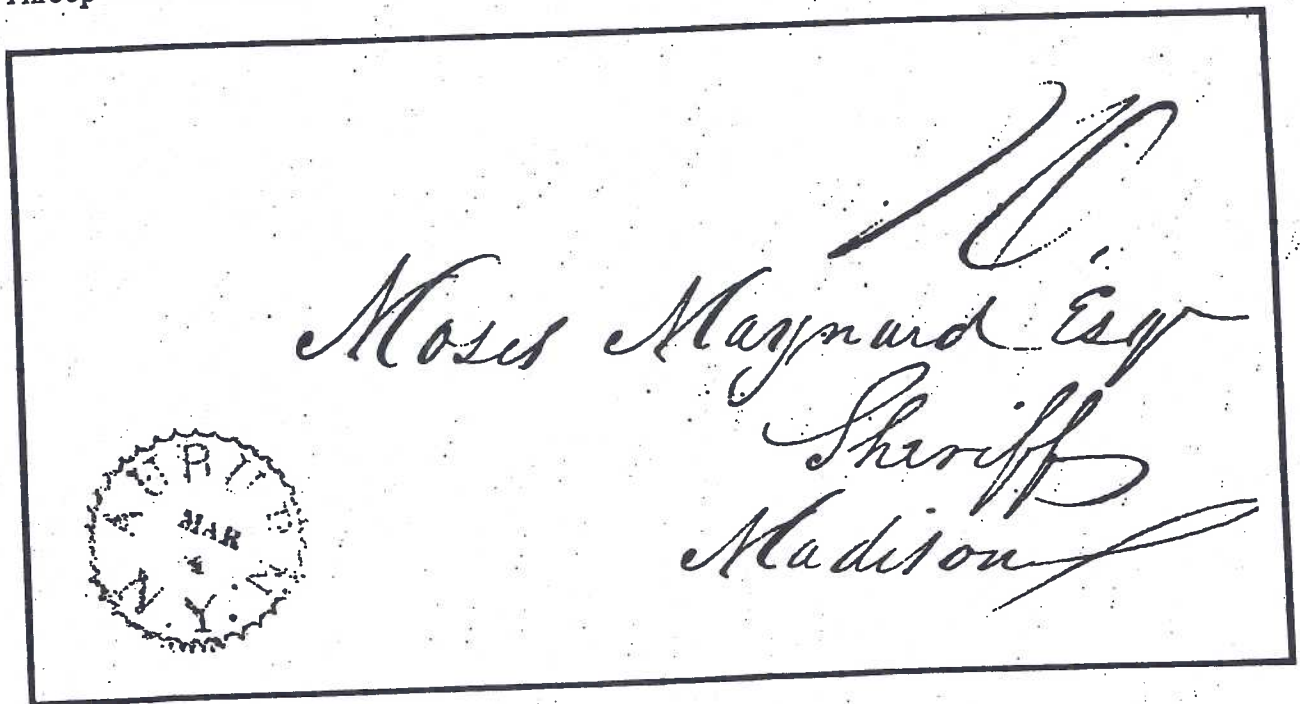 Throop
Moses Maynard Esqr
Sheriff
Madison
AUBURN
MAR
N.Y.